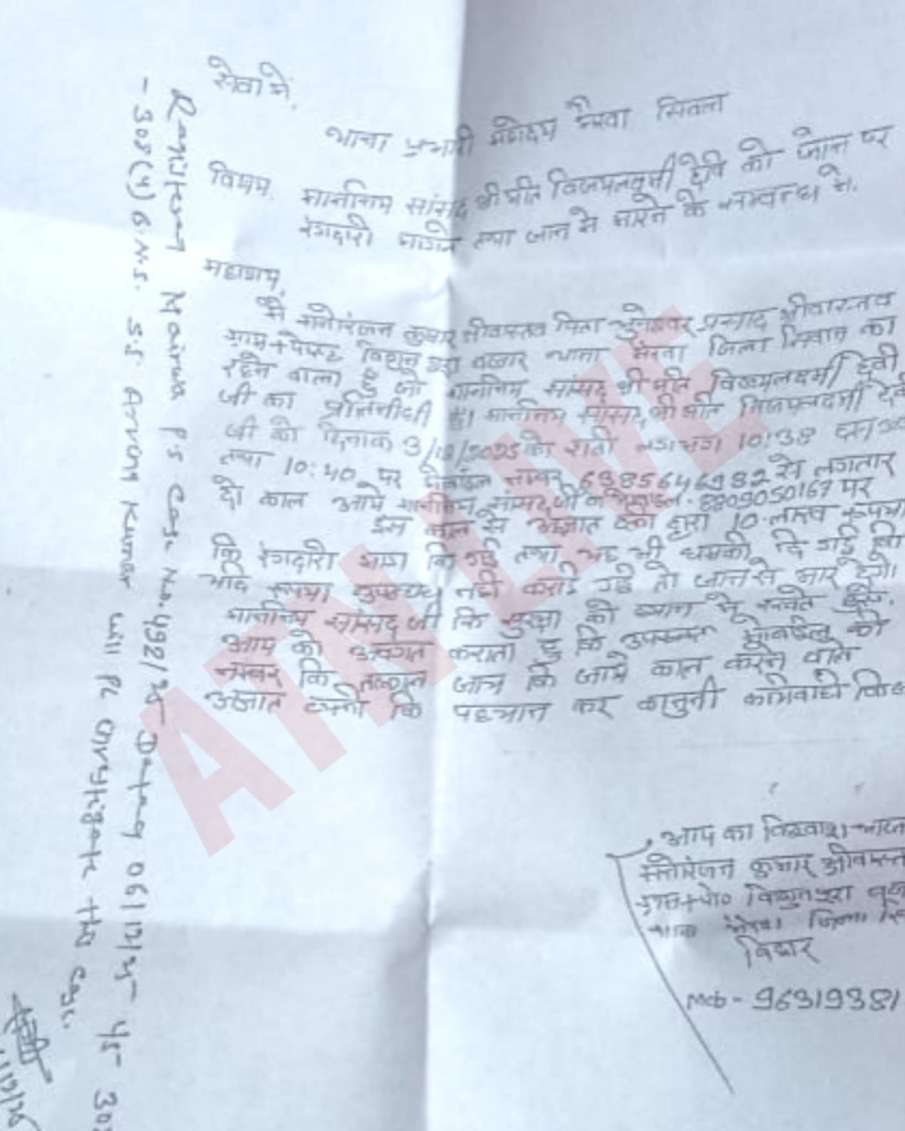 सेवा में,
थाना प्रभारी महोदय मैरवा सिवान
विषय. माननिय सांसद श्रीमति विजयलक्ष्मी देवि को जान पर
रंगदारी मागने तथा जान से मारने के सम्बन्ध मे.
महाशय,
मै मनोरंजन कुमार श्रीवास्तव पिता प्रसाद श्रीवास्तव
ग्राम+पोस्ट थाना मैरवा जिला सिवान का
रहने वाला हु जो माननिय सांसद श्रीमति विजयलक्ष्मी देवी
जी का प्रतिनीधी हु। माननिय सांसद श्रीमति विजयलक्ष्मी देवी
जी को दिनांक 3/12/2025 को रात्री लगभग 10:38
तथा 10:40 पर मोबाइल नम्बर 6385646982 से लगातार
दो काल आये माननिय सांसद जी के मोबाइल - 8809050167 पर
इस काल से अज्ञात द्वारा 10 लाख रूपया
कि रंगदारी माग कि गई तथा यह भी धमकी दि गई कि
यदि रूपया उपलब्ध नही कराई गई तो जान से मार देंगे।
माननिय सांसद जी कि सुरक्षा को ध्यान मे रखते हुए.
आप को अवगत कराता हु कि उपरोक्त मोबाईल को
नम्बर कि तत्काल जाच कि जाये काल करने वाले
अज्ञात कि पहचान कर कानुनी
आप का विश्वाश-भाजन
मनोरंजन कुमार श्रीवास्तव
ग्राम+पो०
थाना मैरवा जिला
बिहार
Mob - 96319381
Registered Mairwa PS Case No. 492/25 Dated 06/12/25 U/S 308
- 308(4) B.N.S. S.I Arvind Kumar will Pl investigate the case.
ATN LIVE